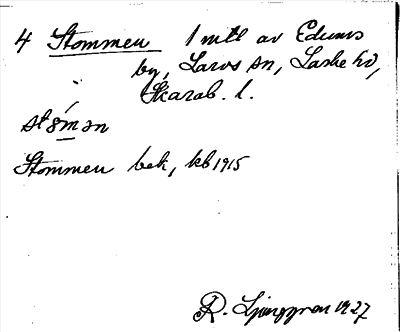 4 Stommen 1 mtl av Edums
by, Larvs sn, Laske hd,
Skarab. l.
stʚ̀mən
Stommen bek, kb 1915
R. Ljunggren 1927